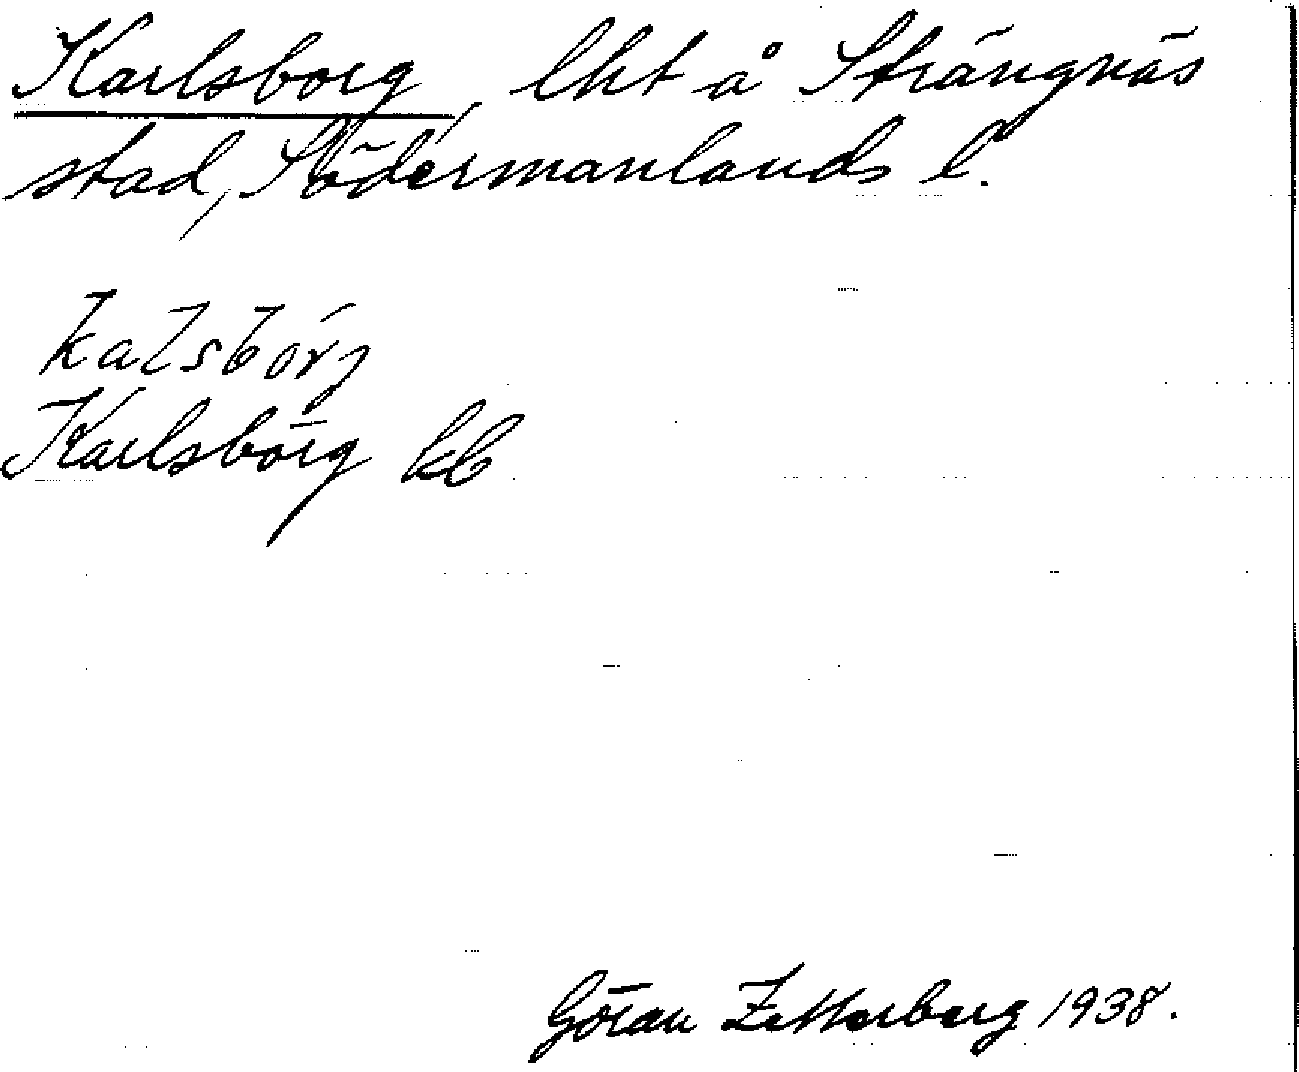 Karlsborg, lht å Strängnäs
stad, Södermanlands l.
kalsbörj
Karlsbörg kb
Göran Zetterberg 1938.